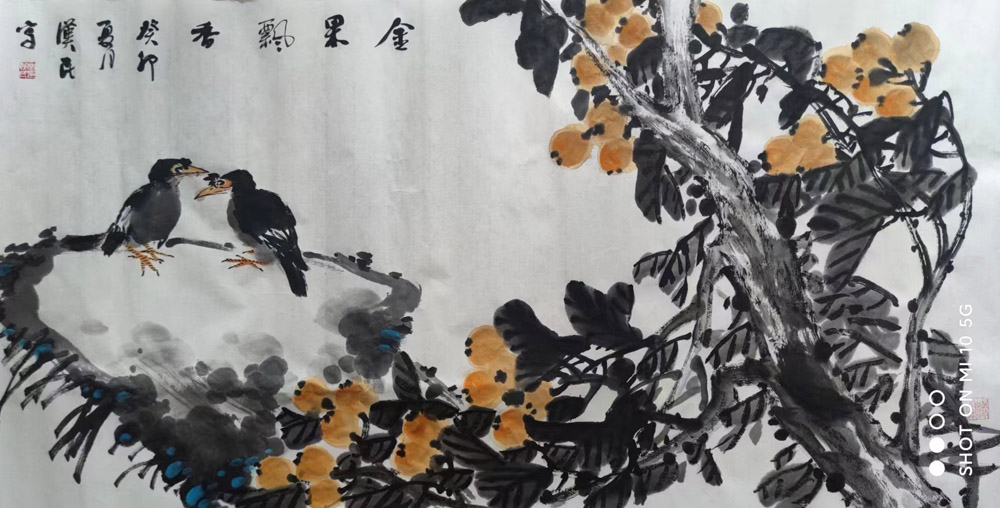 金果飄香
癸卯
夏月
漢民
写
SHOT ON MI 10 5G